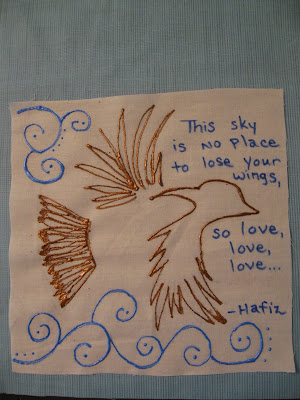 This sky
is no place
to lose your
wings,
so love,
love,
love...
-Hafiz